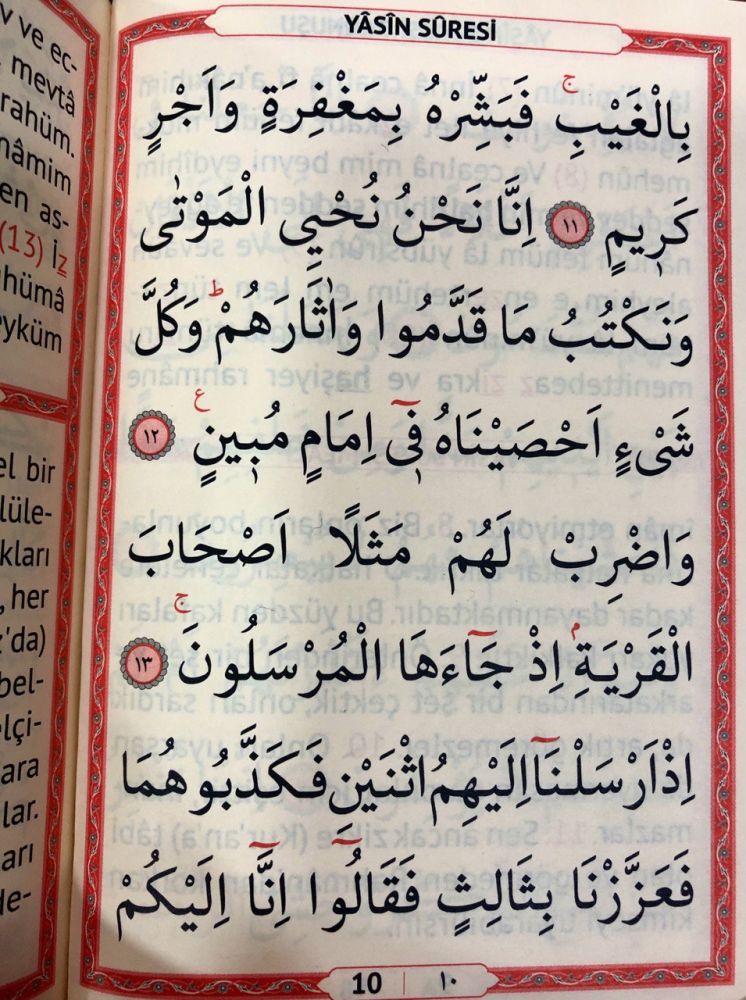 YÂSÎN SÛRESİ
بِالْغَيْبِۚ فَبَشِّرْهُ بِمَغْفِرَةٍ وَاَجْرٍ
كَرِيمٍ ﴿١١﴾ اِنَّا نَحْنُ نُحْيِي الْمَوْتٰى
وَنَكْتُبُ مَا قَدَّمُوا وَاٰثَارَهُمْۜ وَكُلَّ
شَیْءٍ اَحْصَيْنَاهُ فٓى اِمَامٍ مُبِينٍ ﴿١٢﴾
وَاضْرِبْ لَهُمْ مَثَلًا اَصْحَابَ
الْقَرْيَةِۘ اِذْ جَٓاءَهَا الْمُرْسَلُونَۚ ﴿١٣﴾
اِذْ اَرْسَلْنَٓا اِلَيْهِمُ اثْنَيْنِ فَكَذَّبُوهُمَا
فَعَزَّزْنَا بِثَالِثٍ فَقَالُٓوا اِنَّٓا اِلَيْكُمْ
10 | ١٠
v ve ec-
mevtâ
rahüm.
nâmim
en as-
(13) İz
hümâ
eyküm
el bir
lüle-
kları
, her
z'da)
bel-
elçi-
ara
lar.
arı
de-